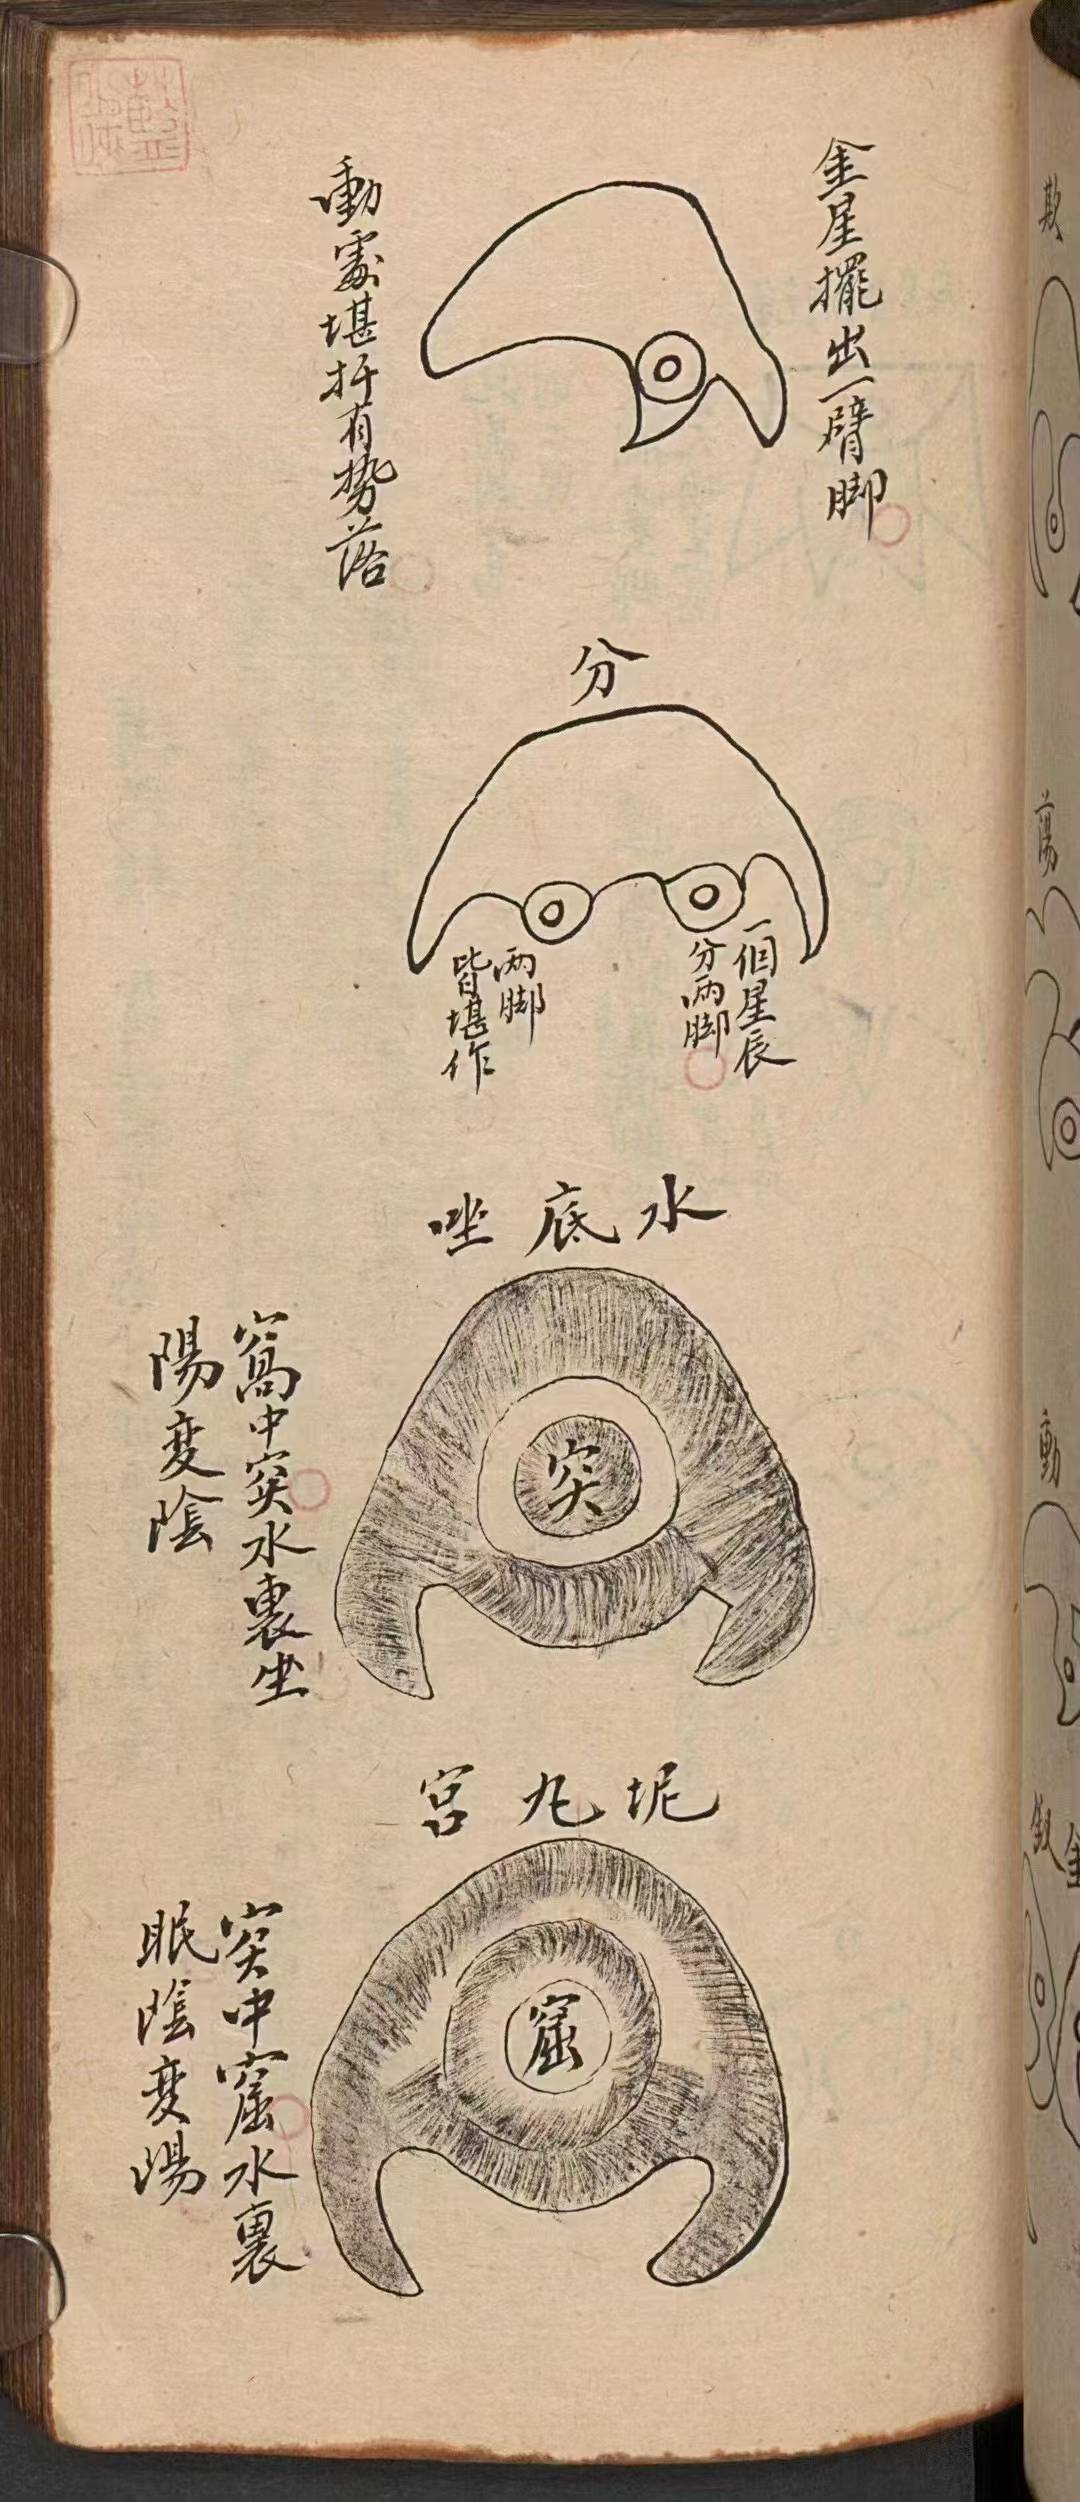 金星擺出一臂脚
動處堪扦有势落
分
一個星辰
分两脚
两脚
皆堪作
水底坐
突
窩中突水裏坐
陽变陰
坭丸宫
窟
突中窟水裏
眠陰变陽
欺
蕩
動